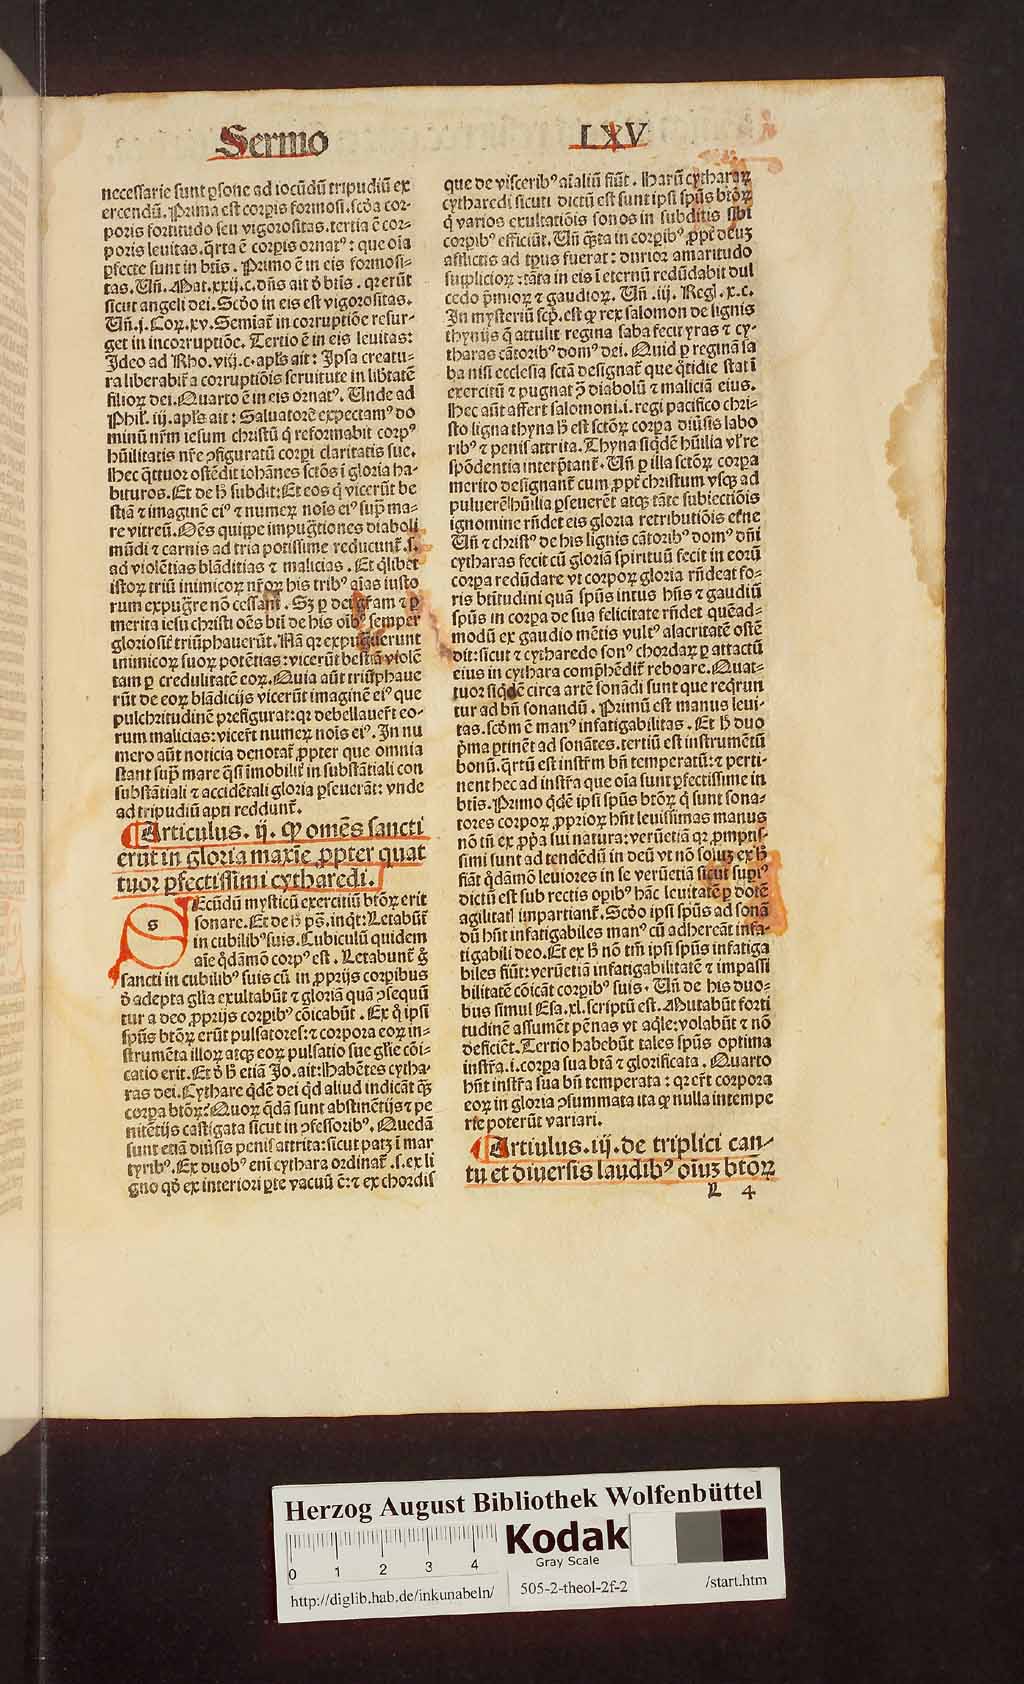 Sermo LXV
necessarie sunt ꝑsone ad iocũdũ tripudiũ ex
ercendũ. Prima est corꝑis formosi. scđa cor-
poris fortitudo seu vigorositas. tertia ẽ cor-
poris leuitas. q̃rta ẽ corꝑis ornatꝰ: que oĩa
ꝑfecte sunt in btĩs. Primo ẽ in eis formosi-
tas. Uñ. Mat. xxij. c. dñs ait đ btĩs. qꝛ erũt
sicut angeli dei. Scđo in eis est vigorositas.
Uñ. j. Coꝝ. xv. Seminat̃ in corruptiõe resur-
get in incorruptiõe. Tertio ẽ in eis leuitas:
Ideo ad Rho. viij. c. apl̃s ait: Ipsa creatu-
ra liberabit̃ a corruptiõis seruitute in lib̃tatẽ
filioꝝ dei. Quarto ẽ in eis ornatꝰ. Unde ad
Phil̃. iij. apl̃s ait: Saluatorẽ expectamꝰ do
minũ nr̃m iesum christũ q̃ reformabit corpꝰ
hũilitatis nr̃e ꝯfiguratũ corꝑi claritatis sue.
Hec q̃ttuor ostẽdit iohãnes sctõs ĩ gloria ha-
bituros. Et de h̃ subdit: Et eos q̃ vicerũt be
stiã ⁊ imaginẽ eiꝰ ⁊ numeꝝ noĩs eiꝰ suꝑ ma-
re vitreũ. Oẽs quippe impug̃tiones diaboli
mũdi ⁊ carnis ad tria potissime reducunt̃. s.
ad violẽtias blãditias ⁊ malicias. Et q̃libet
istoꝝ triũ inimicoꝝ nr̃oꝝ his tribꝰ aĩas iusto
rum expug̃re nõ cessant̃. Sꝫ ꝑ dei gr̃am ⁊ ꝑ
merita iesu christi oẽs btĩ de his oĩbꝰ semper
gloriosiĩ triũphauerũt. Nã qꝛ expug̃uerunt
inimicoꝝ suoꝝ potẽtias: vicerũt bestiã violẽ
tam ꝑ credulitatẽ eoꝝ. Quia aũt triũphaue
rũt de eoꝝ blãdicijs vicerũt imaginẽ eiꝰ que
pulchritudinẽ prefigurat: qꝛ debellauer̃t eo-
rum malicias: vicer̃t numeꝝ nois eiꝰ. In nu
mero aũt noticia denotat̃ ꝓpter que omnia
stant suꝑ mare q̃si ĩmobilit̃ in substãtiali con
substãtiali ⁊ accidẽtali gloria ꝑseuerãt: vnde
ad tripudiũ apti reddunt̃.
Articulus. ij. ꝙ omẽs sancti
erũt in gloria maxĩe ꝓpter quat
tuor ꝑfectissimi cytharedi.
s Ecũdũ mysticũ exercitiũ btõꝝ erit
sonare. Et de h̃ ps̃. inq̃t: Letabũt̃
in cubilibꝰ suis. Cubiculũ quidem
aĩe q̃dãmõ corpꝰ est. Letabunt̃ g̃
sancti in cubilibꝰ suis cũ in ꝓprijs corꝑibus
đ adepta gl̃ia exultabũt ⁊ gloriã quã ꝯsequũ
tur a deo ꝓprijs corꝑibꝰ cõicabũt. Ex q̃ ipsi
spũs btõꝝ erũt pulsatores: ⁊ corpora eoꝝ in-
strumẽta illoꝝ atqꝫ eoꝝ pulsatio sue gl̃ie cõi-
catio erit. Et đ h̃ etiã Jo. ait: Habẽtes cytha-
ras dei. Cythare q̃dẽ dei qđ aliud indicãt q̃ꝫ
corꝑa btõꝝ? Quoꝝ q̃dã sunt abstinẽtijs ⁊ pe
nitẽtijs castigata sicut in ꝯfessoribꝰ. Quedã
sunt etiã diũsis penis attrita: sicut patꝫ ĩ mar
tyribꝰ. Ex duobꝰ eni cythara ordinat̃. s. ex li
gno qđ ex interiori ꝑte vacuũ ẽ: ⁊ ex chordis
que de visceribꝰ aĩaliũ fiũt. Haꝝ cytharaꝝ
cytharedi sicuti dictũ est sunt ipsi spũs btõꝝ
q̃ varios exultatiõis sonos in subditis sibi
corꝑibꝰ efficiũt. Uñ q̃sta in corꝑibꝰ ꝓpt̃ deuꝫ
afflictis ad tp̃us fuerat: durior amaritudo
supplicioꝝ: tãta in eis ĩ eternũ redũdabit dul
cedo p̃mioꝝ ⁊ gaudioꝝ. Uñ. iij. Reg̃. x. c.
In mysteriũ scp̃. est ꝙ rex salomon de lignis
thynijs q̃ attulit regina saba fecit lyras ⁊ cy-
tharas cãtoribꝰ domꝰ dei. Quid ꝑ reginã sa
ba nisi ecclesia sctã designat̃ que q̃tidie stat ĩ
exercitũ ⁊ pugnat ꝯ̃ diabolũ ⁊ maliciã eius.
Hec aũt affert salomoni. i. regi pacifico chri-
sto ligna thyna h̃ est sctõꝝ corꝑa diũsis labo
ribꝰ ⁊ penis attrita. Thyna siq̃dẽ hũilia vl̃ re
spõdentia interp̃tant̃. Uñ ꝑ illa sctõꝝ corꝑa
merito designant̃ cum ꝓpt̃ christum vsqꝫ ad
puluerẽ hũilia ꝑseuerẽt atqꝫ tãte subiectiõis
ignomine rñdet eis gloria retributiõis etñe
Uñ ⁊ christꝰ de his lignis cãtoribꝰ domꝰ dñi
cytharas fecit cũ gloriã spirituũ fecit in eorũ
corꝑa redũdare vt corpoꝝ gloria rñdeat fo-
ris btitudini quã spũs intus hñs ⁊ gaudiũ
spũs in corꝑa de sua felicitate rñdet quẽad-
modũ ex gaudio mẽtis vultꝰ alacritatẽ ostẽ
dit: sicut ⁊ cytharedo sonꝰ chordaꝝ ꝑ attactũ
eius in cythara comp̃hẽdit̃ reboare. Quat-
tuor siq̃dẽ circa artẽ sonãdi sunt que reqrun
tur ad bñ sonandũ. Primũ est manus leui-
tas. scđm ẽ manꝰ infatigabilitas. Et h̃ duo
p̃ma ꝑtinẽt ad sonãtes. tertiũ est instrumẽtũ
bonũ. q̃rtũ est instr̃m bñ temperatũ: ⁊ perti-
nent hec ad instr̃a que oĩa sunt ꝑfectissime in
btĩs. Primo q̃dẽ ipsi spũs btõꝝ q̃ sunt sona-
tores corpoꝝ ꝓprioꝝ hñt leuissimas manus
nõ tñ ex ꝓp̃a sui natura: verũetiã qꝛ ꝓmptis-
simi sunt ad tendẽdũ in deũ vt nõ soluꝫ ex h̃
fiãt q̃dãmõ leuiores in se verũetiã sicut supiꝰ
dictũ est sub rectis oꝑibꝰ hãc leuitatẽ ꝑ dotẽ
agilitatĩ impartiant̃. Scđo ipsi spũs ad sonã
dũ hñt infatigabiles manꝰ cũ adhereãt infa-
tigabili deo. Et ex h̃ nõ tm̃ ipsi spũs infatiga
biles fiũt: verũetiã infatigabilitatẽ ⁊ impassi
bilitatẽ cõicãt corꝑibꝰ suis. Uñ de his duo-
bus simul Esa. xl. scriptũ est. Mutabũt forti
tudinẽ assumẽt pẽnas vt aq̃le: volabũt ⁊ nõ
deficiẽt. Tertio habebũt tales spũs optima
instr̃a. i. corꝑa sua btã ⁊ glorificata. Quarto
hñt instr̃a sua bñ temperata: qꝛ er̃t corpora
eoꝝ in gloria ꝯsummata ita ꝙ nulla intempe
rie poterũt variari.
Artiulus. iij. de triplici can-
tu et diuersis laudibꝰ oĩuꝫ btõꝝ
L 4
Herzog August Bibliothek Wolfenbüttel
0 1 2 3 4
Kodak
Gray Scale
http://diglib.hab.de/inkunabeln/ 505-2-theol-2f-2 /start.htm